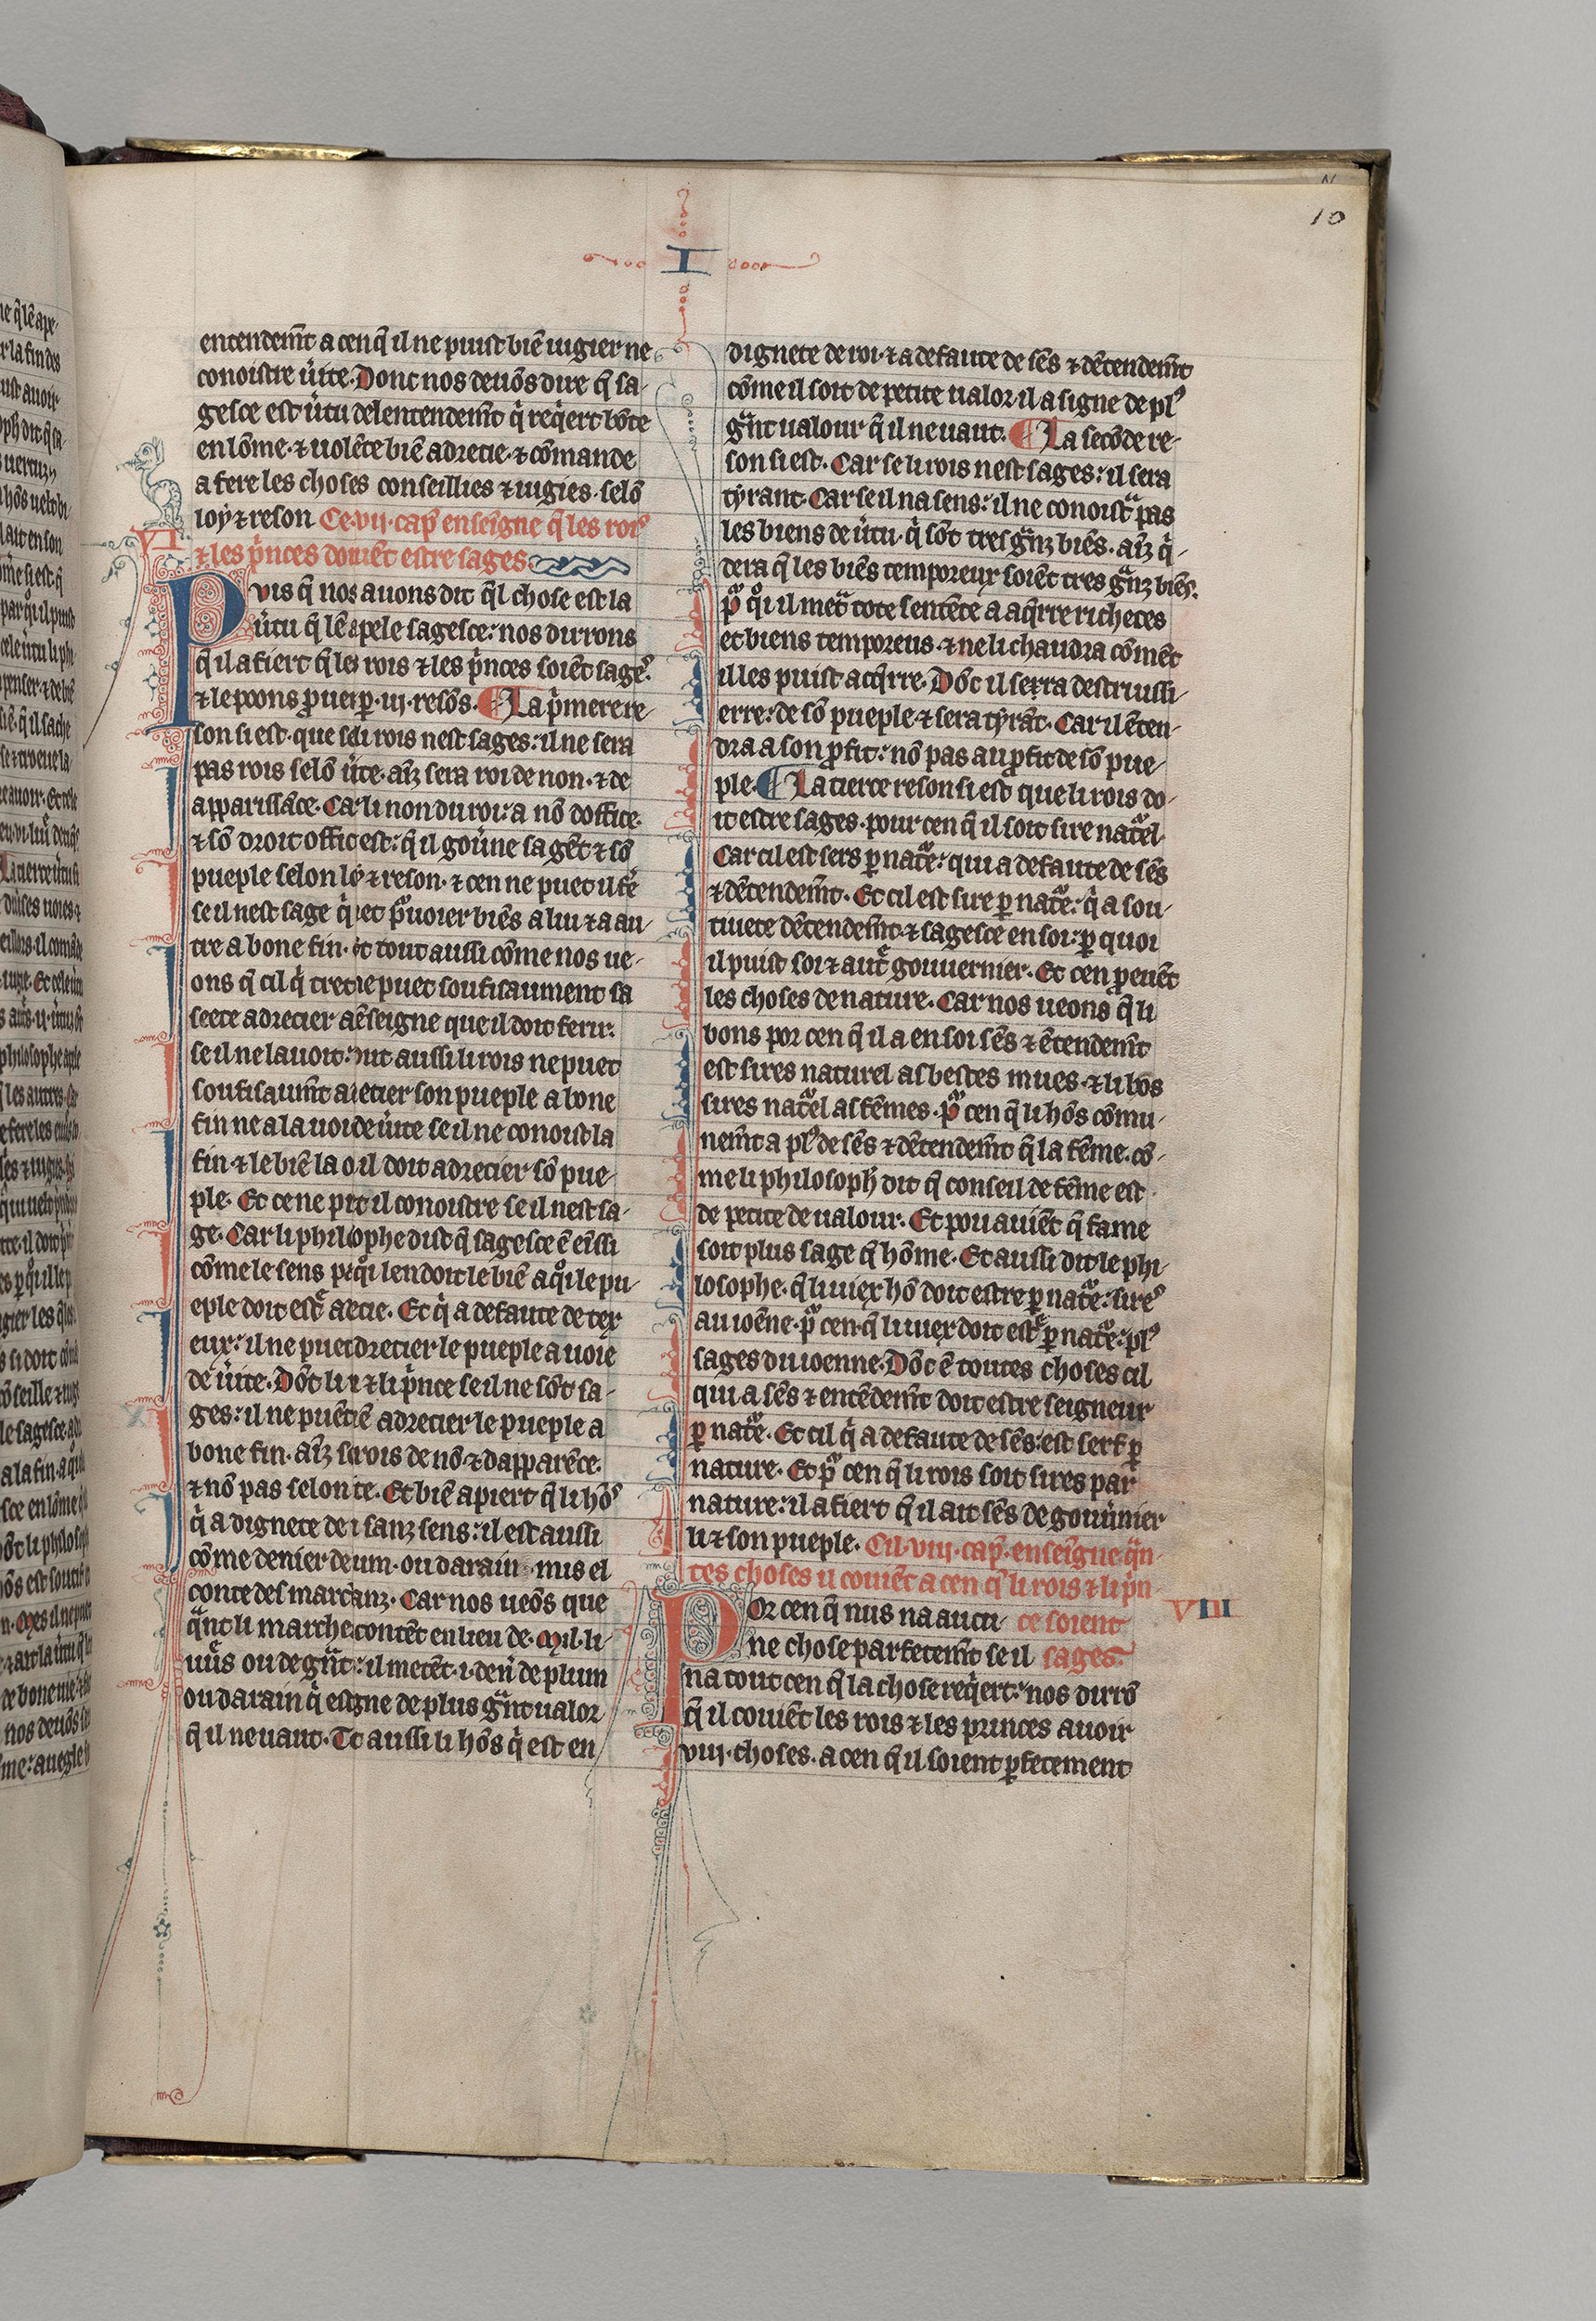 10
I
entendem̃t a cen q̃ il ne puist biẽ iugier ne
conoistre u̇ite. Donc nos deuõs dire q̃ sa-
gesce est u̇tu del entendem̃t q̇ req̇ert bõte
en lõme. ⁊ uolẽte biẽ adrecie. ⁊ cõmande
a fere les choses conseillies ⁊ iugies. selõ
loy ⁊ reson Ce .vii. cap̃ enseigne q̃ les rois
⁊ les ṗnces doiuẽt estre sages
VI
Puis q̃ nos auons dit q̃l chose est la
u̇tu q̃ lẽ apele sagesce: nos dirrons
q̃ il afiert q̃ les rois ⁊ les ṗnces soiẽt sages.
⁊ le poons prueir p̱ .iij. resõs. ¶ La ṗmere re-
son si est. que se li rois nest sages: il ne sera
pas rois selõ u̇ite. aĩz sera roi de non. ⁊ de
apparissãce. Car li non du roi: a nõ doffice.
⁊ sõ droit office est: q̃ il gou̇ne sa gẽt ⁊ sõ
pueple selon loy ⁊ reson. ⁊ cen ne puet il fẽ
se il nest sage
tre a bone fin. Et tout aussi cõme nos ue-
ons q̃ cil q̇ tret ne puet soufisaument sa
seete adrecier a lẽseigne que il doit ferir:
se il ne la uoit: tout aussi li rois ne puet
soufisaum̃t adrecier son pueple a bone
fin ne a la uoi de u̇ite se il ne conoist la
fin ⁊ le biẽ la o il doit adrecier sõ pue-
ple. Et ce ne puet il conoistre se il nest sa-
ge. Car li philosophe dist q̃ sagesce ẽ eĩssi
cõme le sens
eple doit estre
eux: il ne puet adrecier le pueple a uoie
de u̇ite. Dõt li roi ⁊ li ṗnce se il ne sõt sa-
ges: il ne puẽt biẽ adrecier le pueple a
bone fin. aĩz st rois de nõ ⁊ dapparẽce.
⁊ nõ pas selon u̇ite. Et biẽ apiert q̃ li hõs
q̇ a dignete de roi sanz sens: il est aussi
cõme denier de plum. ou darain mis el
conte des marcheanz. Car nos ueõs que
qãnt li marcheant contẽt en lieu de .Mil. li-
ures ou de gãnt: il metẽt .i. deñ de plum
ou darain q̇ est signe de plus gãnt ualor
q̃ il ne uaut. Tot aussi li hõs q̇ est en
dignete de roi. ⁊ a defaute de sẽs ⁊ dẽtendem̃t
cõme il soit de petite ualor. il a signe de pl9
gãnt ualour q̃ il ne uaut. ¶ La secõde re-
son si est. Car se li rois nest sages: il sera
tyrant. Car se il na sens: il ne conoistra pas
les biens de u̇tu. q̇ sõt tres gãnz biẽs. aĩz q̇-
dera q̃ les biẽs temporeux soiẽt tres gãnz biẽs.
pᵃ qͦi il metᵃ tote sentẽte a aq̃rre richeces
et biens temporeus. ⁊ ne li chaudra cõmẽt
il les puist acq̃rre. Dõc il serra destruissi-
erre: de sõ pueple ⁊ sera tyrãt. Car il ẽten-
dra a son ꝓfit: nõ pas au ꝓfit de sõ pue-
ple. ¶ La tierce reson si est que li rois do-
it estre sages. pour cen q̃ il soit sire natᵃel.
Car cil est sers p̱ natᵃe: qui a defaute de sẽs
⁊ dẽtendem̃t. Et cil est sire p̱ natᵃe: q̇ a sou-
tiuete dẽtendem̃t ⁊ sagesce en soi: p̱ quoi
il puist soi ⁊ autre gouuernier. Et cen ꝓeuẽt
les choses de nature. Car nos ueons q̃ li
bons por cen q̃ il a en soi sẽs ⁊ ẽtendem̃t
est sires naturel as bestes mues. ⁊ li hõs
sires natᵃel as fẽmes. pᵃ cen q̃ li hõs cõmu-
nem̃t a pl9 de sẽs ⁊ dẽtendem̃t q̃ la fẽme. cõ-
me li philosoph dit q̃ conseil de fẽme est
de petite de ualour. Et pou auiẽt q̃ fame
soit plus sage q̃ hõme. Et aussi dit le phi-
losophe. q̃ li uiex hõ doit estre p̱ natᵃe: sires
au ioẽne. pᵃ cen q̃ li uiex doit estre p̱ natᵃe: pl9
sages du ioenne. Dõc ẽ toutes choses cil
qui a sẽs ⁊ entẽdem̃t doit estre seigneur
p̱ natᵃe. Et cil q̇ a defaute de sẽs: est serf p̱
nature. Et pᵃ cen q̃ li rois soit sires par
nature: il afiert q̃ il ait sẽs de gouu̇nier
li ⁊ son pueple. Cil .viii. cap̃. enseigne qãn-
tes choses il couiẽt a cen q̃ li rois ⁊ li ṗn-
VIII
Por cen q̃ nus na aucu- ce soient
ne chose parfetem̃t se il sages.
na tout cen q̃ la chose req̇ert: nos dirrõ
q̃ il couiẽt les rois ⁊ les princes auoir
viij. choses. a cen q̃ il soient p̱fetement